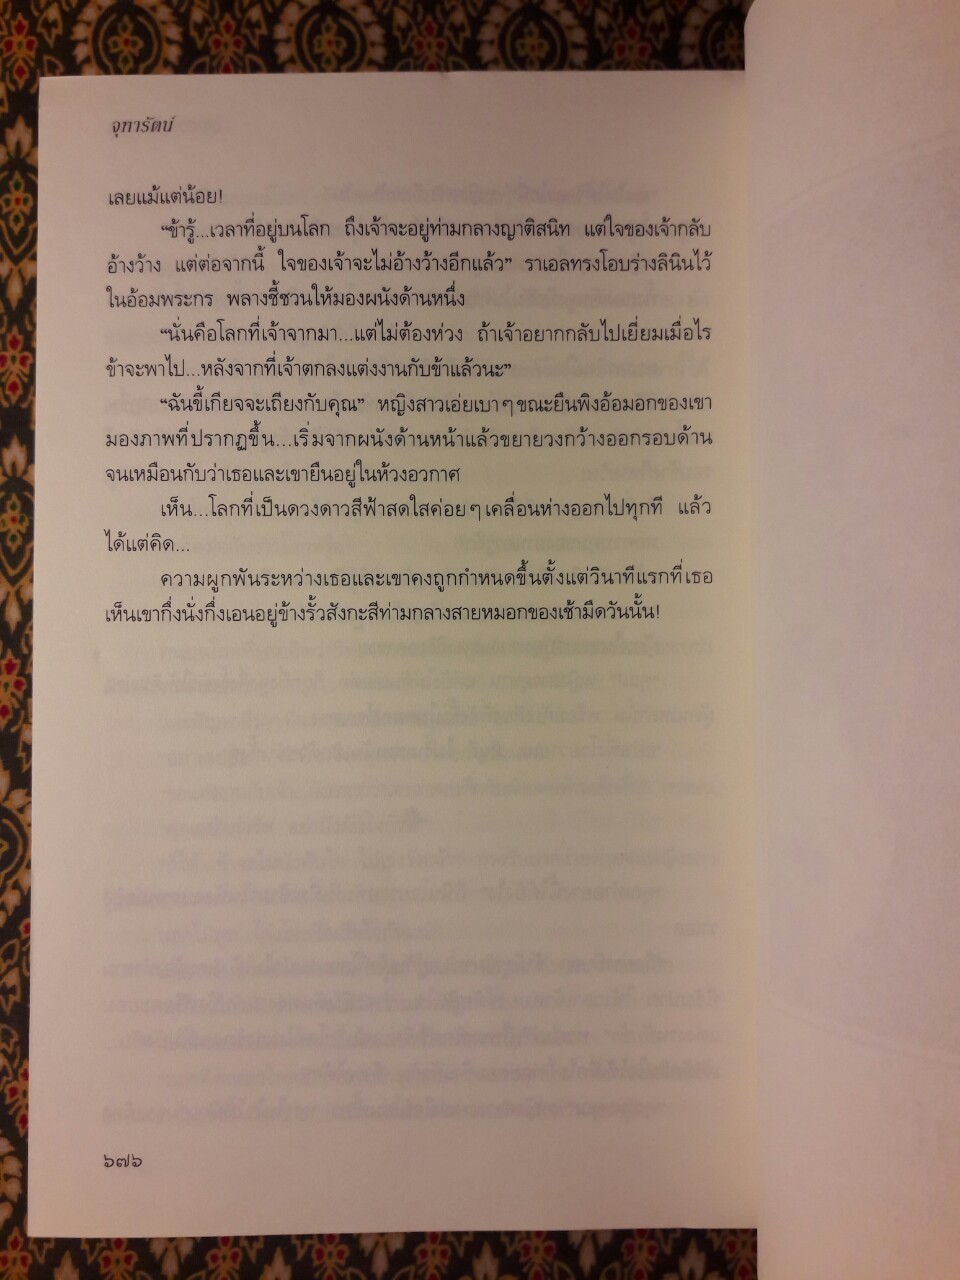 จุฑารัตน์
เลยแม้แต่น้อย!
“ข้ารู้...เวลาที่อยู่บนโลก ถึงเจ้าจะอยู่ท่ามกลางญาติสนิท แต่ใจของเจ้ากลับ
อ้างว้าง แต่ต่อจากนี้ ใจของเจ้าจะไม่อ้างว้างอีกแล้ว” ราเอลทรงโอบร่างลินินไว้
ในอ้อมพระกร พลางชี้ชวนให้มองผนังด้านหนึ่ง
“นั่นคือโลกที่เจ้าจากมา...แต่ไม่ต้องห่วง ถ้าเจ้าอยากกลับไปเยี่ยมเมื่อไร
ข้าจะพาไป...หลังจากที่เจ้าตกลงแต่งงานกับข้าแล้วนะ”
“ฉันขี้เกียจจะเถียงกับคุณ” หญิงสาวเอ่ยเบาๆ ขณะยืนพิงอ้อมอกของเขา
มองภาพที่ปรากฏขึ้น...เริ่มจากผนังด้านหน้าแล้วขยายวงกว้างออกรอบด้าน
จนเหมือนกับว่าเธอและเขายืนอยู่ในห้วงอวกาศ
เห็น...โลกที่เป็นดวงดาวสีฟ้าสดใสค่อยๆ เคลื่อนห่างออกไปทุกที แล้ว
ได้แต่คิด...
ความผูกพันระหว่างเธอและเขาคงถูกกำหนดขึ้นตั้งแต่วินาทีแรกที่เธอ
เห็นเขากึ่งนั่งกึ่งเอนอยู่ข้างรั้วสังกะสีท่ามกลางสายหมอกของเช้ามืดวันนั้น!
๖๗๖